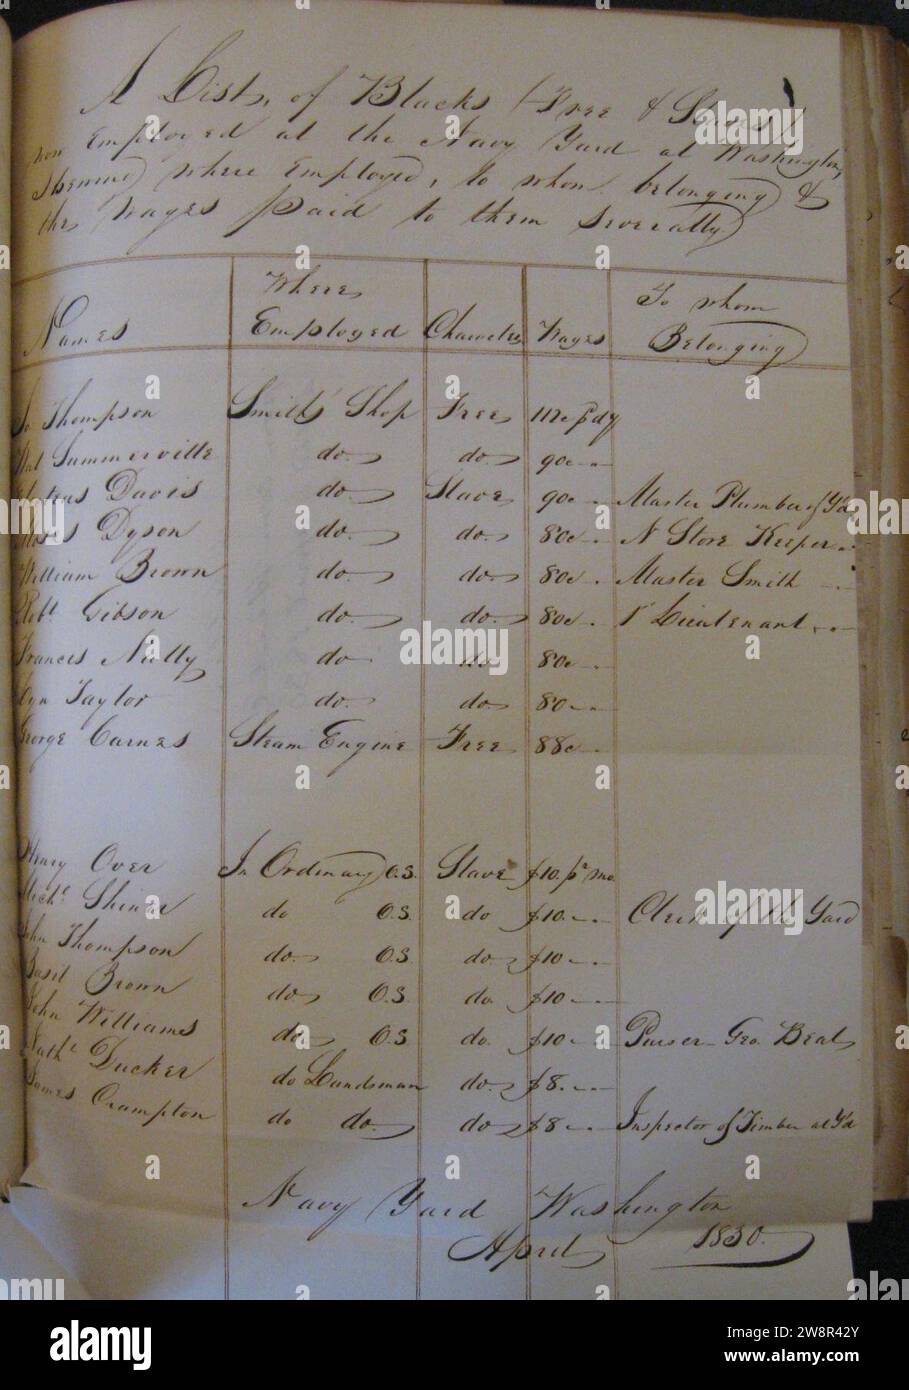 A List, of Blacks (Free & Slaves)
now Employed at the Navy Yard at Washington,
Shewing where Employed, to whom belonging &
the Wages paid to them Severally
Names Where Employed Character Wages To whom Belonging
Thompson Smiths' Shop Free 112c pr dy
Summerville do. do. 90c
Davis do. Slave 90c Master Plumber of Yd
Moses Dyson do. do. 80c N Store Keeper
William Brown do. do. 80c Master Smith
Robt Gibson do. do. 80c 1t Lieutenant
Francis do do 80c
Taylor do. do 80
George Carnes Steam Engine Free 88c
Henry Over In Ordinary O.S. Slave $10. pr mo.
Michl Shiner do O.S. do $10 Clerk of the Yard
John Thompson do. O.S. do. $10
Basil Brown do. O.S. do. $10
John Williams do. O.S. do. $10 Purser Geo. Beal
Nathl Ducker do Landsman do. $8.
James Crampton do do. do $8 Inspector of Timber at Yd
Navy Yard Washington
April 1830.
alamy
Image ID: 2W8R42Y
www.alamy.com